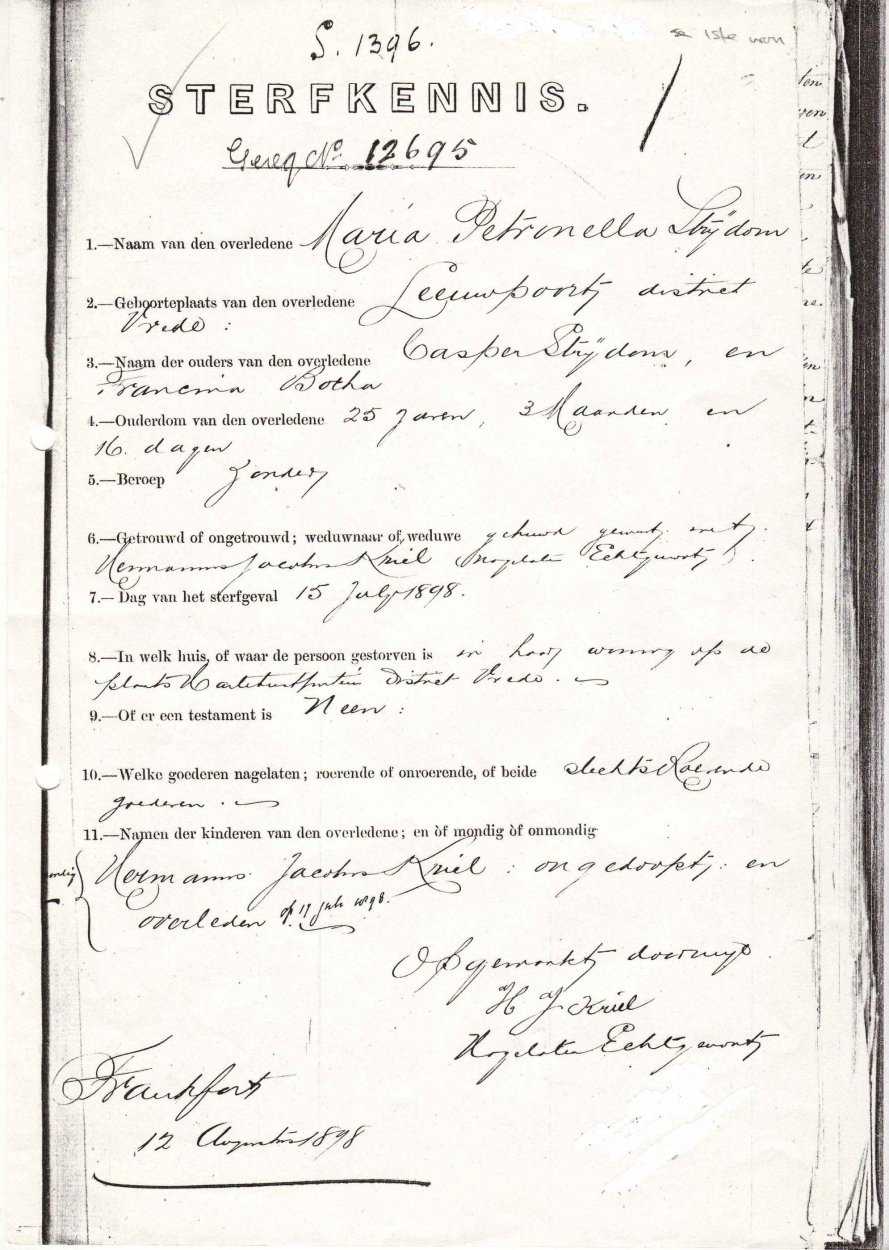 S. 1396.
STERFKENNIS.
Gereg No. 12695
1.—Naam van den overledene Maria Petronella Strijdom
2.—Geboorteplaats van den overledene Leeuwpoort district
Vrede :
3.—Naam der ouders van den overledene Casper Strijdom, en
Francina Botha
4.—Ouderdom van den overledene 25 jaren, 3 Maanden en
16. dagen
5.—Beroep Zonder
6.—Getrouwd of ongetrouwd; weduwnaar of weduwe gehuwd geweest met
Hermanus Jacobus Kriel Nagelaten Echtgenoot
7.—Dag van het sterfgeval 15 July 1898.
8.—In welk huis, of waar de persoon gestorven is in haar woning op de
plaats District Vrede.
9.—Of er een testament is Neen :
10.—Welke goederen nagelaten; roerende of onroerende, of beide slechts Roerende
goederen.
11.—Namen der kinderen van den overledene; en òf mondig òf onmondig
Hermanus Jacobus Kriel : ongedoopt : en
overleden op 17 Juli 1898.
Opgemaakt door mij
H J Kriel
Nagelaten Echtgenoot
Frankfort
12 Augustus 1898